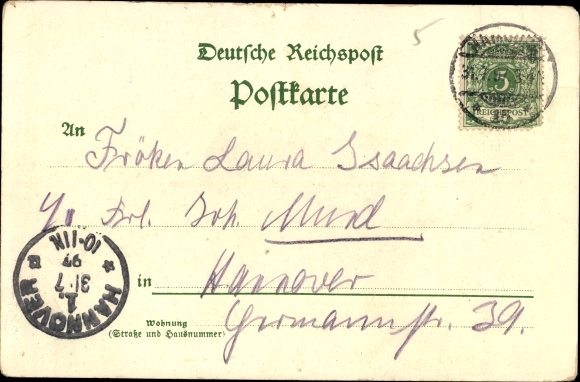 5
Deutsche Reichspost
Postkarte
5
REICHSPOST
An
Fröken Laura Isaachsen
Frl. Joh. Mund
in Hannover
Wohnung
(Straße und Hausnummer)
Germannstr. 39.
HANNOVER
1
31.7
97
10-11N